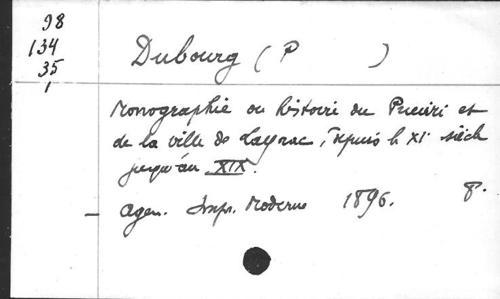 98
134
35
1
Dubourg (P )
Monographie ou histoire du Prieuré et
de la ville de Layrac, depuis le XI siècle
jusqu'au XIX.
— Agen. Impr. Moderne 1896. 8.